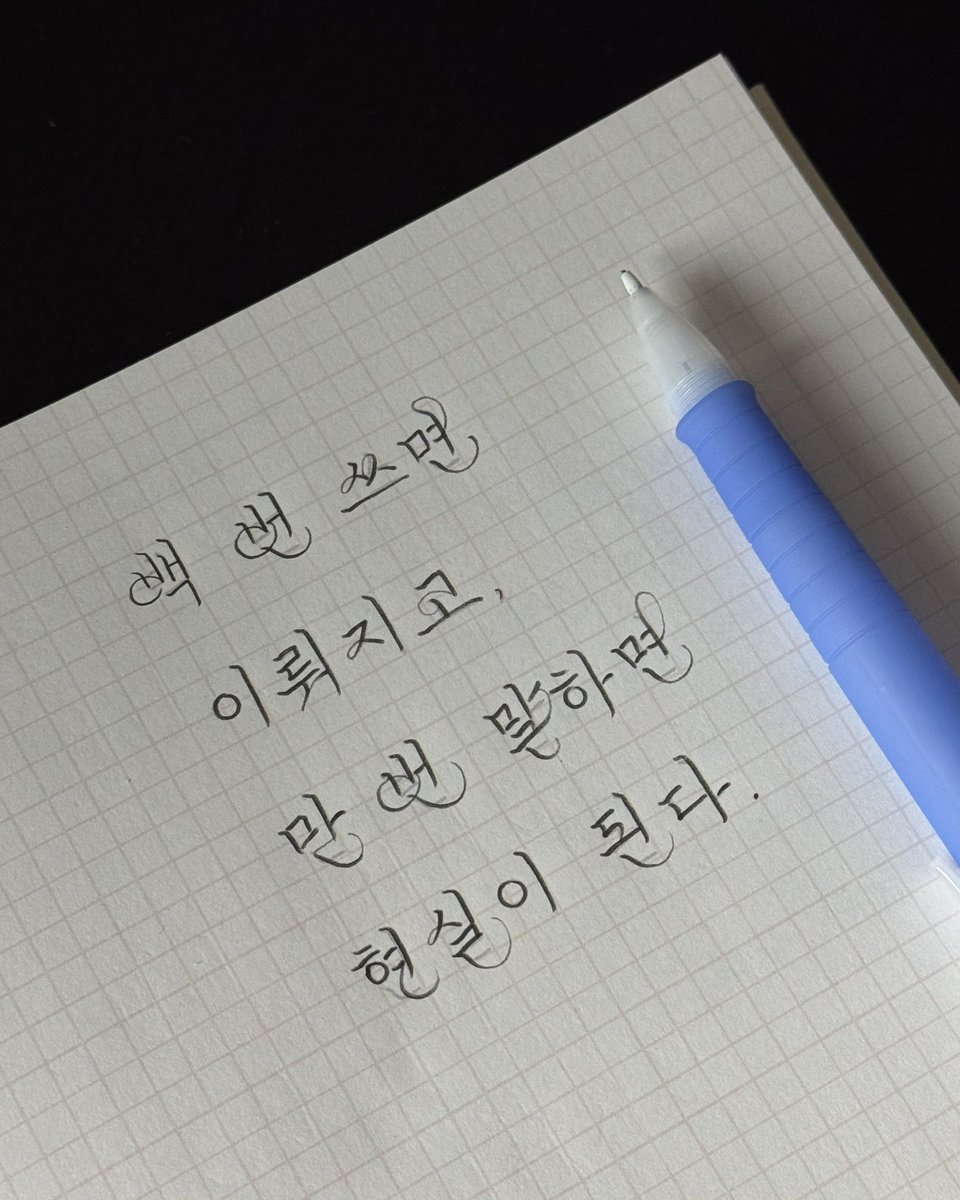 백 번 쓰면
이뤄지고,
만 번 말하면
현실이 된다.